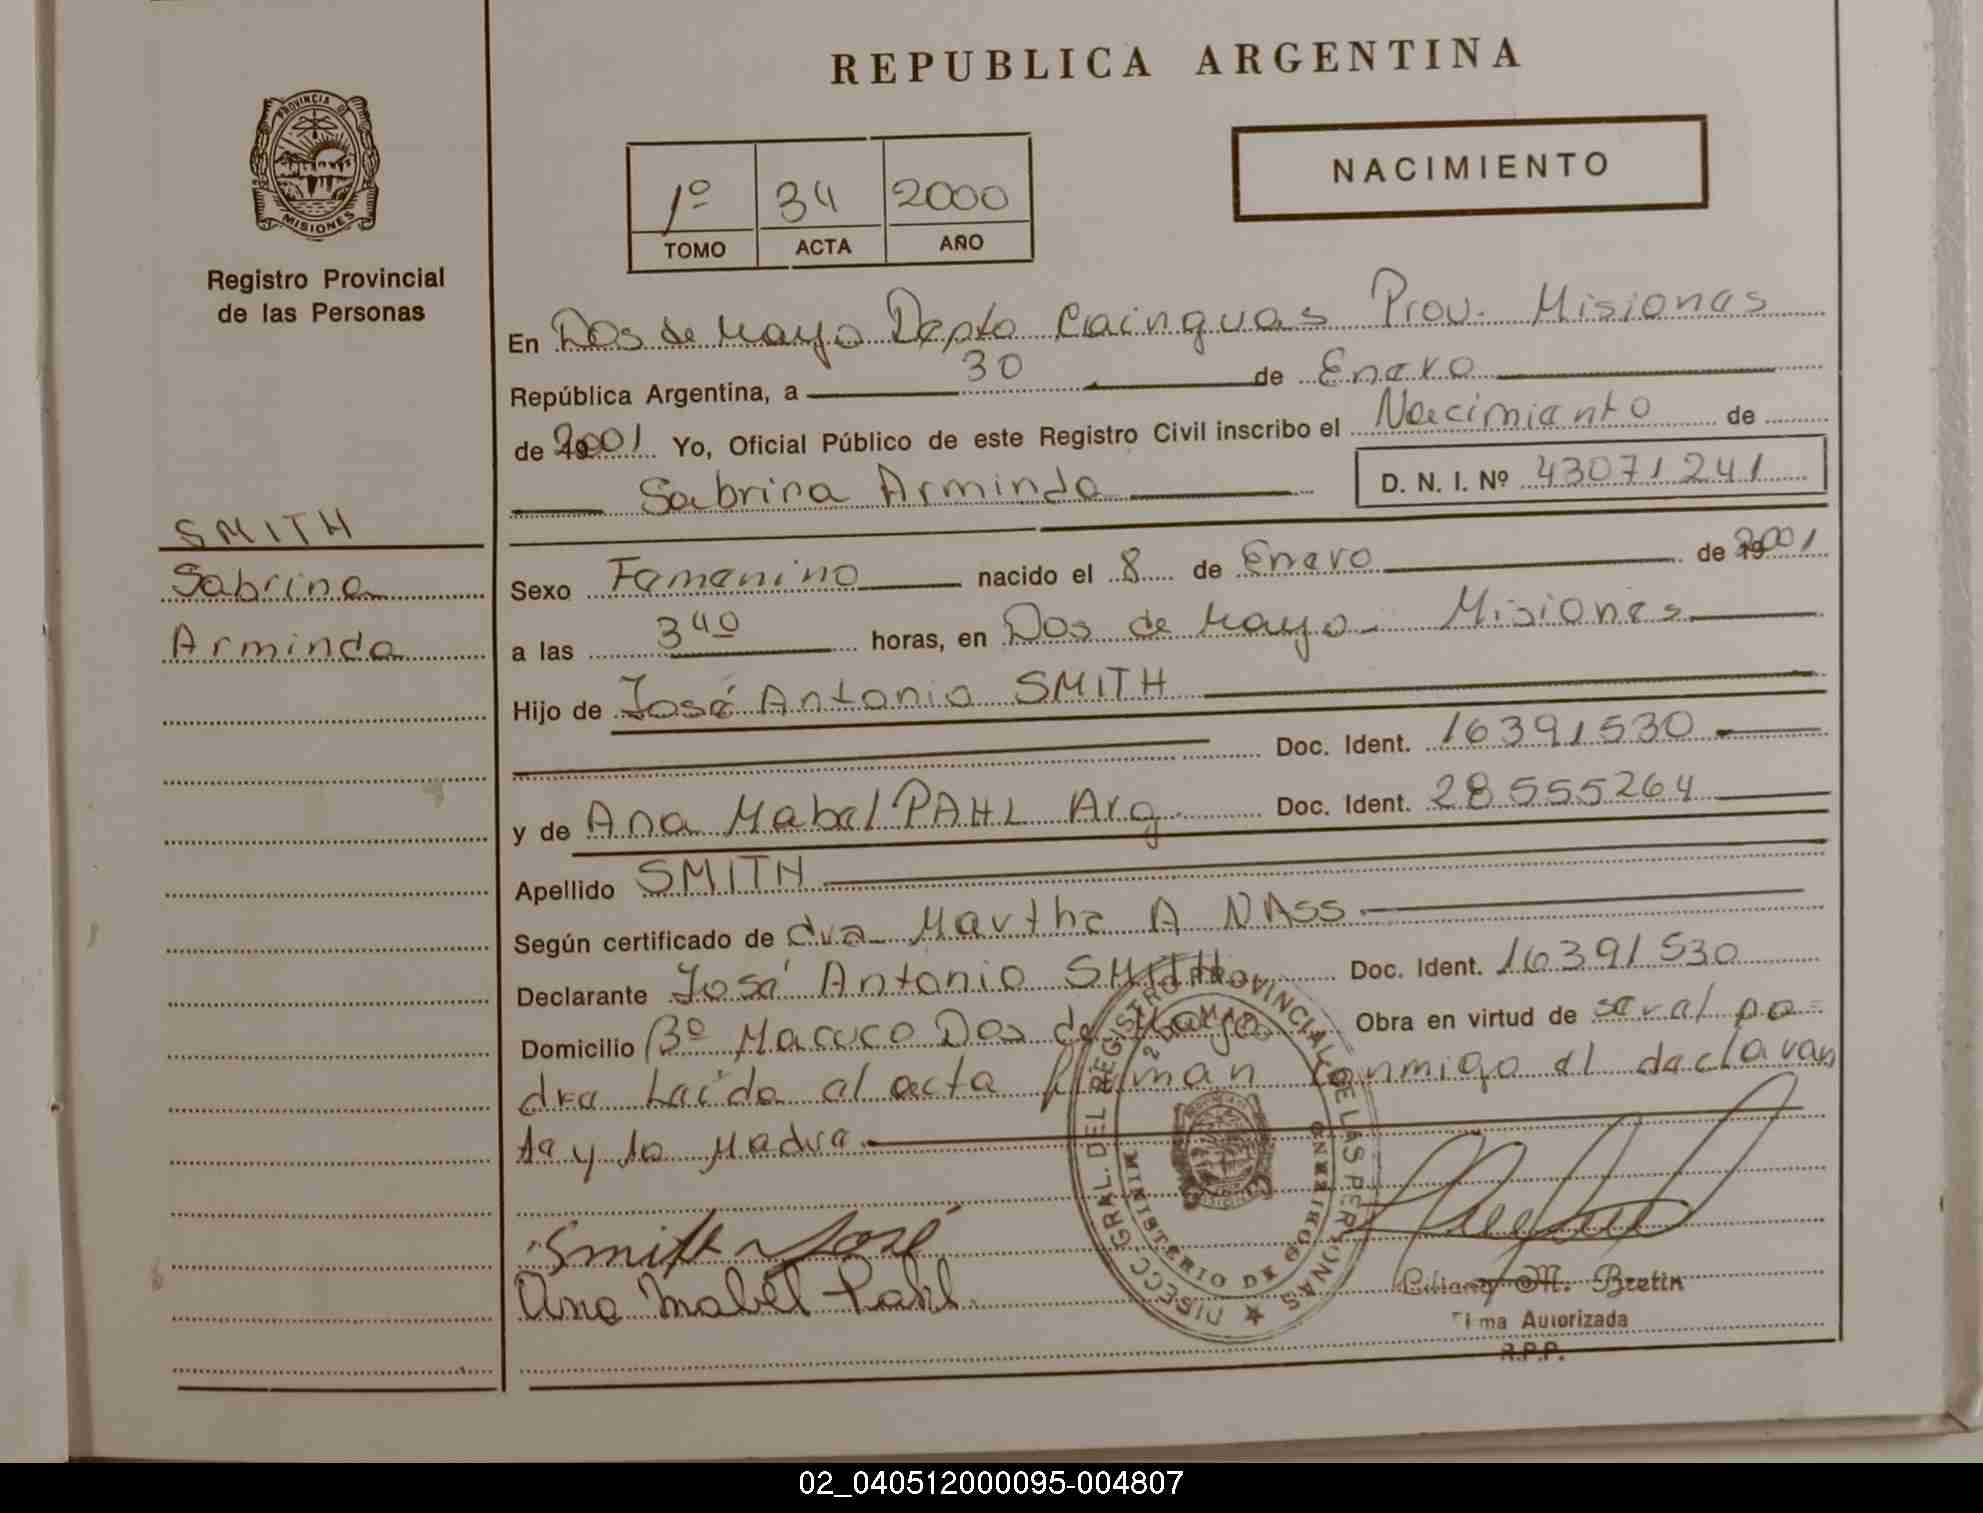 REPUBLICA ARGENTINA
PROVINCIA D
MISIONES
Registro Provincial
de las Personas
1º 34 2000
TOMO ACTA AÑO
NACIMIENTO
En Dos de Mayo Depto Cainguas Prov. Misiones
República Argentina, a 30 de Enero
de 2001 Yo, Oficial Público de este Registro Civil inscribo el Nacimiento de
Sabrina Arminda D. N. I. Nº 43071241
SMITH
Sabrina
Arminda
Sexo Femenino nacido el 8 de Enero de 2001
a las 3 40 horas, en Dos de Mayo - Misiones
Hijo de José Antonio SMITH
Doc. Ident. 16391530
y de Ana Mabel PAHL Arg. Doc. Ident. 28555264
Apellido SMITH
Según certificado de dra Martha A NAss
Declarante José Antonio SMITH Doc. Ident. 16391530
Domicilio Bº Macuco Dos de Mayo Obra en virtud de ser el pa=
dre Leída el acta firman conmigo el declaran
te y la Madre
Smith José
Ana Mabel Pahl
DIRECC GRAL. DEL REGISTRO PROVINCIAL DE LAS PERSONAS
MINISTERIO DE GOBIERNO
Liliana M. Bretin
Firma Autorizada
R.P.P.
02_040512000095-004807